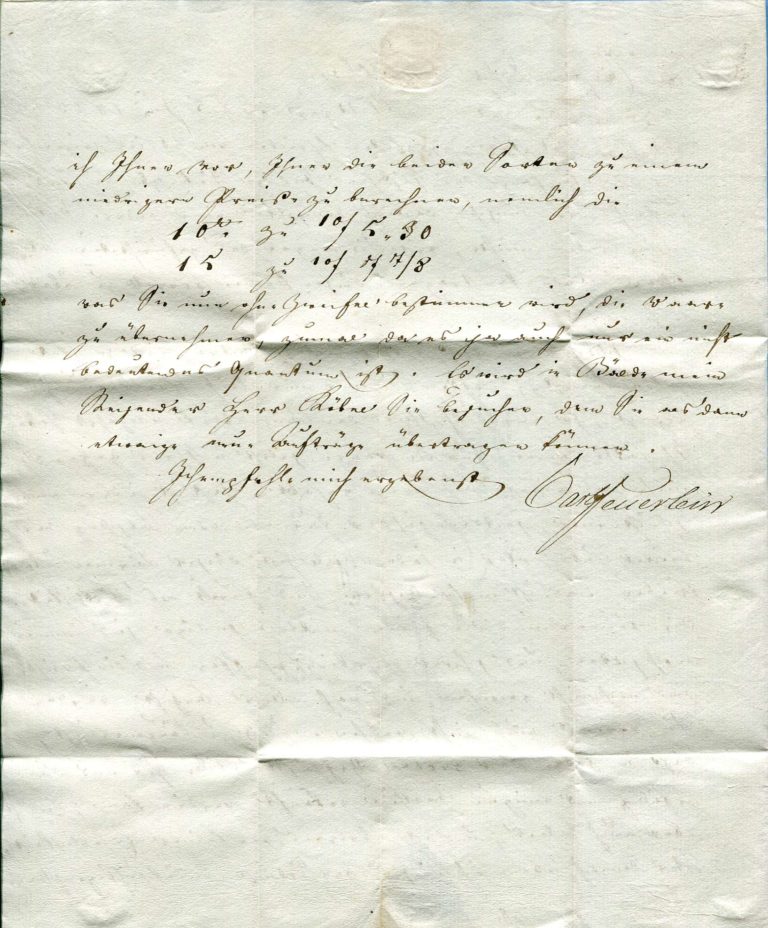 ich Ihnen vor, Ihnen die beiden Sorten zu einem
niedrigern Preiße zu berechnen, nemlich die
10er zu 10f 5.30
15 zu 10f 17 7/8
was Sie nun ohne Zweifel bestimmen wird, die Waare
zu übernehmen, zumal da es ja auch nur ein nicht
bedeutendes Quantum ist. Es wird in Bälde mein
Reisender Herr Köbel Sie besuchen, dem Sie als dann
etwaige neue Aufträge übertragen können.
Ich empfehle mich ergebenst Carl Feuerlein